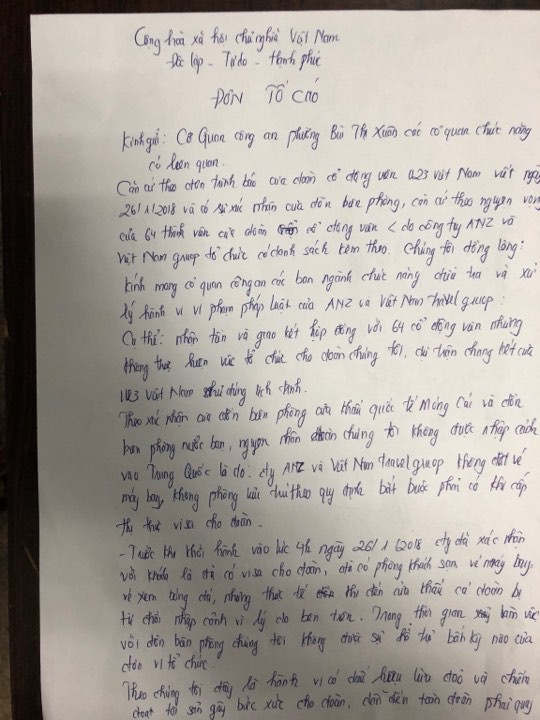 Cộng hoà xã hội chủ nghĩa Việt Nam
Độc lập - Tự do - Hạnh phúc
ĐƠN TỐ CÁO
Kính gửi: Cơ Quan công an phường Bùi Thị Xuân các cơ quan chức năng
có liên quan.
Căn cứ theo đơn trình báo của đoàn cổ động viên U23 Việt Nam viết ngày
26/1/2018 và có sự xác nhận của đồn biên phòng, căn cứ theo nguyện vọng
của 64 thành viên của đoàn cổ động viên < do công ty ANZ và
Việt Nam group tổ chức có danh sách kèm theo. Chúng tôi đồng lòng:
Kính mong cơ quan công an các ban ngành chức năng điều tra và xử
lý hành vi vi phạm pháp luật của ANZ và Việt Nam travel group.
Cụ thể: nhận tiền và giao kết hợp đồng với 64 cổ động viên nhưng
không thực hiện việc tổ chức cho đoàn chúng tôi, dự trận chung kết của
U23 Việt Nam đúng lịch trình.
Theo xác nhận của đồn biên phòng cửa khẩu quốc tế Móng Cái và đồn
biên phòng nước bạn, nguyên nhân đoàn chúng tôi không được nhập cảnh
vào Trung Quốc là do: cty ANZ và Việt Nam travel group không đặt vé
máy bay, không phòng lưu trú theo quy định bắt buộc phải có khi cấp
thị thực visa cho đoàn.
- Trước khi khởi hành vào lúc 4h ngày 26/1/2018 cty đã xác nhận
với khách là đã có visa cho đoàn, đã có phòng khách sạn vé máy bay,
vé xem bóng đá, nhưng thực tế khi đến cửa khẩu cả đoàn bị
từ chối nhập cảnh vì lý do bên trên. Trong thời gian làm việc
với đồn biên phòng chúng tôi không được sự hỗ trợ bất kỳ nào của
đơn vị tổ chức.
Theo chúng tôi đây là hành vi có dấu hiệu lừa đảo và chiếm
đoạt tài sản gây bức xúc cho đoàn, dẫn đến toàn đoàn phải quay